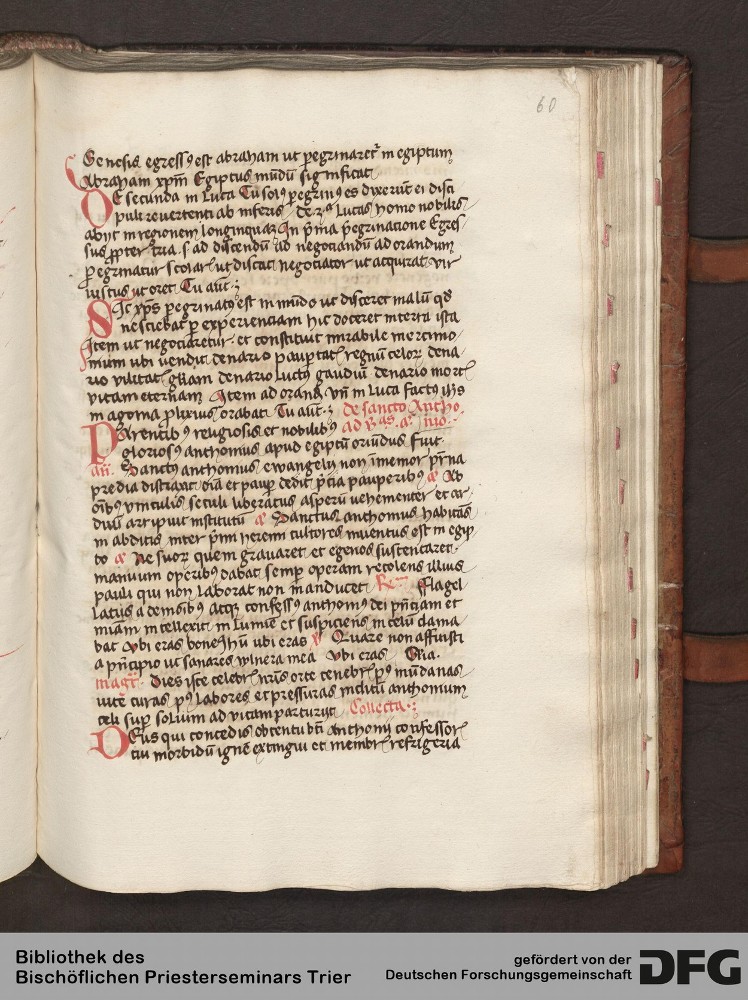 60
Genesis egressꝰ est abraham ut ꝑegrinaretᷣ in egiptum
Abraham xp̄m Egiptus mūdū significat
DE secunda in Luca Tu solꝰ ꝑegrinꝰ es dixerūt ei disci
puli revertenti ab inferis De Lucas homo nobilis
abijt in regionem longinquaꝫ In p̄ma ꝑegrinacione Egres
sus ꝓpter tria .s. ad discendū ad negociandū ad orandum
ꝑegrinatur scolar ut discat negociator ut acquirat vir
iustus ut oret Tu aūt
Sic xp̄s ꝑegrinatꝰ est in mūdo ut disceret malū qd̄
nesciebat ꝑ experienciam hic doceret in terra ista
Item ut negociaretur et constituit mirabile mercimo
nium ubi vendit denario paupertatis regnū celoꝝ dena
rio vilitatis gl̄iam denario luctꝰ gaudiū denario mortis
vitam eternam Item ad orandū vn̄ in Luca factꝰ ih̄s
in agonia ꝓlixius orabat Tu aūt de sancto Antho
PArentibꝰ religiosis et nobilibꝰ ad nio
gloriosꝰ anthonius apud egiptū oriūdus fuit
an̄. Sanctꝰ anthonius ewangelij non īmemor pr̄na
predia distraxit om̄ia et pauꝑ dedit p̄cia pauperibꝰ a Ab
om̄ibꝰ vinculis seculi liberatus asperū vehementer et ar
duū arripuit institutū a Sanctus anthonius habitās
in abditis inter p̄mi heremi cultores inuentus est in egip
to a Ne suoꝝ quem gravaret et egenos sustentaret
manuum operibꝰ dabat semꝑ operam recolens illius
pauli qui non laborat non manducet Rꝰ fflagel
latus a demōibꝰ atqꝫ confessꝰ anthoniꝰ dei pn̄ciam et
mīam intellexit in lumīe et suspiciens in celū clama
bat Vbi eras bone ih̄u ubi eras v Quare non affuisti
a pn̄cipio ut sanares vulnera mea Vbi eras Gl̄ia
magt̄. Dies iste celebris nr̄is orte tenebris pꝰ mūdanas
vite curas pꝰ labores et pressuras inclitū anthonium
celi suꝑ solium ad vitam parturijt Collecta
DEus qui concedis obtentu bt̄i anthonij confessoris
tui morbidū ignē extingui et membris refrigeria
Bibliothek des
Bischöflichen Priesterseminars Trier
gefördert von der
Deutschen Forschungsgemeinschaft
DFG